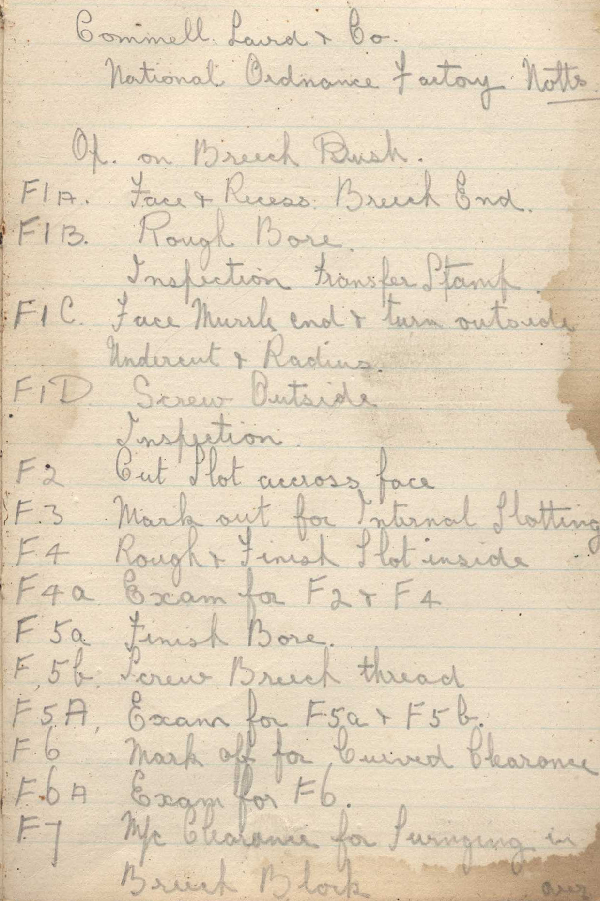 Commell Laird & Co.
National Ordnance Factory Notts
Op. on Breech Bush.
F1A. Face & Recess Breech End.
F1B. Rough Bore.
Inspection transfer Stamp.
F1C. Face Muzzle end & turn outside
Undercut & Radius.
F1D Screw Outside
Inspection
F2 Cut Slot accross face
F.3 Mark out for Internal Slotting
F4 Rough & Finish Slot inside
F4a Exam for F2 & F4
F5a Finish Bore.
F.5b. Screw Breech thread
F5A, Exam for F5a & F5b.
F6 Mark off for Curved Clearance
F6A Exam for F6.
F7 M/c Clearance for in
Breech Block